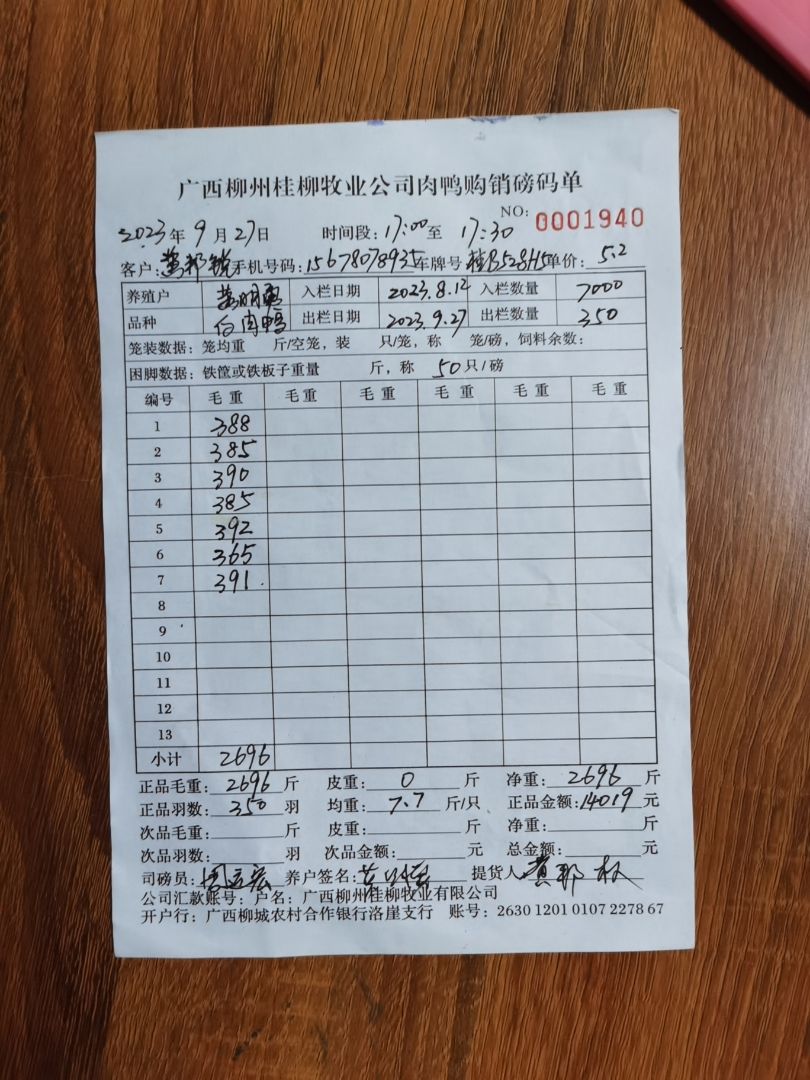 广西柳州桂柳牧业公司肉鸭购销磅码单
NO: 0001940
2023年 9 月 27日 时间段: 17:00 至 17:30
客户: 黄邦 手机号码: 15678078935 车牌号 单价: 5.2
养殖户 入栏日期 2023.8.12 入栏数量 7000
品种 白肉鸭 出栏日期 2023.9.27 出栏数量 350
笼装数据: 笼均重 斤/空笼, 装 只/笼, 称 笼/磅, 饲料余数:
困脚数据: 铁筐或铁板子重量 斤, 称 50 只/磅
编号 毛重 毛重 毛重 毛重 毛重 毛重
1 388
2 385
3 390
4 385
5 392
6 365
7 391
8
9
10
11
12
13
小计 2696
正品毛重: 2696 斤 皮重: 0 斤 净重: 2696 斤
正品羽数: 350 羽 均重: 7.7 斤/只 正品金额: 14019 元
次品毛重: 斤 皮重: 斤 净重: 斤
次品羽数: 羽 次品金额: 元 总金额: 元
司磅员: 养户签名: 提货人
公司汇款账号: 户名: 广西柳州桂柳牧业有限公司
开户行: 广西柳城农村合作银行洛崖支行 账号: 2630 1201 0107 2278 67